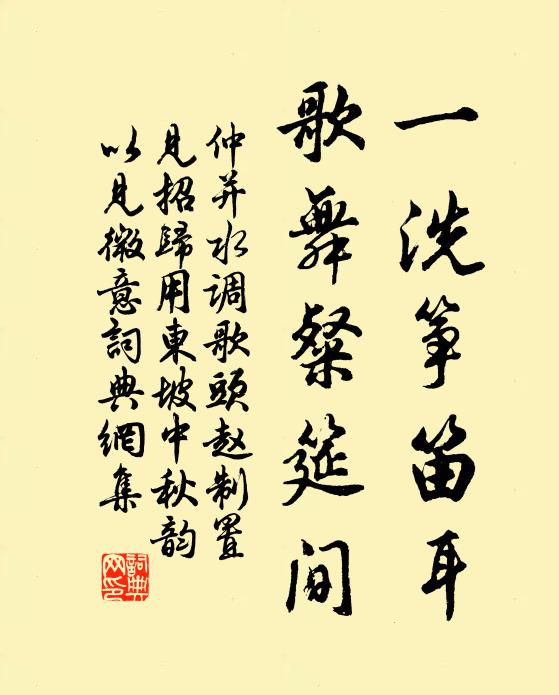 一洗筝笛耳
歌舞粲筵间
仲并水调歌頭赵制置
見招歸用東坡中秋韵
以見微意詞典網集
詞典
网印